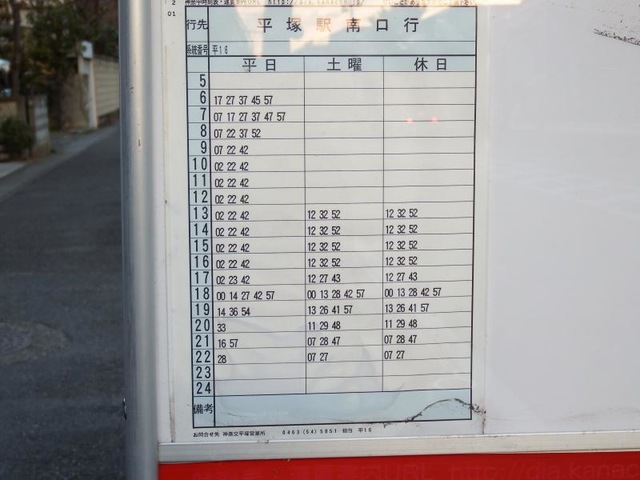 2
01
行先 平塚駅南口行
系統番号 平16
平日 土曜 休日
5
6 17 27 37 45 57
7 07 17 27 37 47 57
8 07 22 37 52
9 07 22 42
10 02 22 42
11 02 22 42
12 02 22 42
13 02 22 42 12 32 52 12 32 52
14 02 22 42 12 32 52 12 32 52
15 02 22 42 12 32 52 12 32 52
16 02 22 42 12 32 52 12 32 52
17 02 23 42 12 27 43 12 27 43
18 00 14 27 42 57 00 13 28 42 57 00 13 28 42 57
19 14 36 54 13 26 41 57 13 26 41 57
20 33 11 29 48 11 29 48
21 16 57 07 28 47 07 28 47
22 28 07 27 07 27
23
24
備考
お問合せ先 神奈交平塚営業所 0463(54)5851 担当 平16